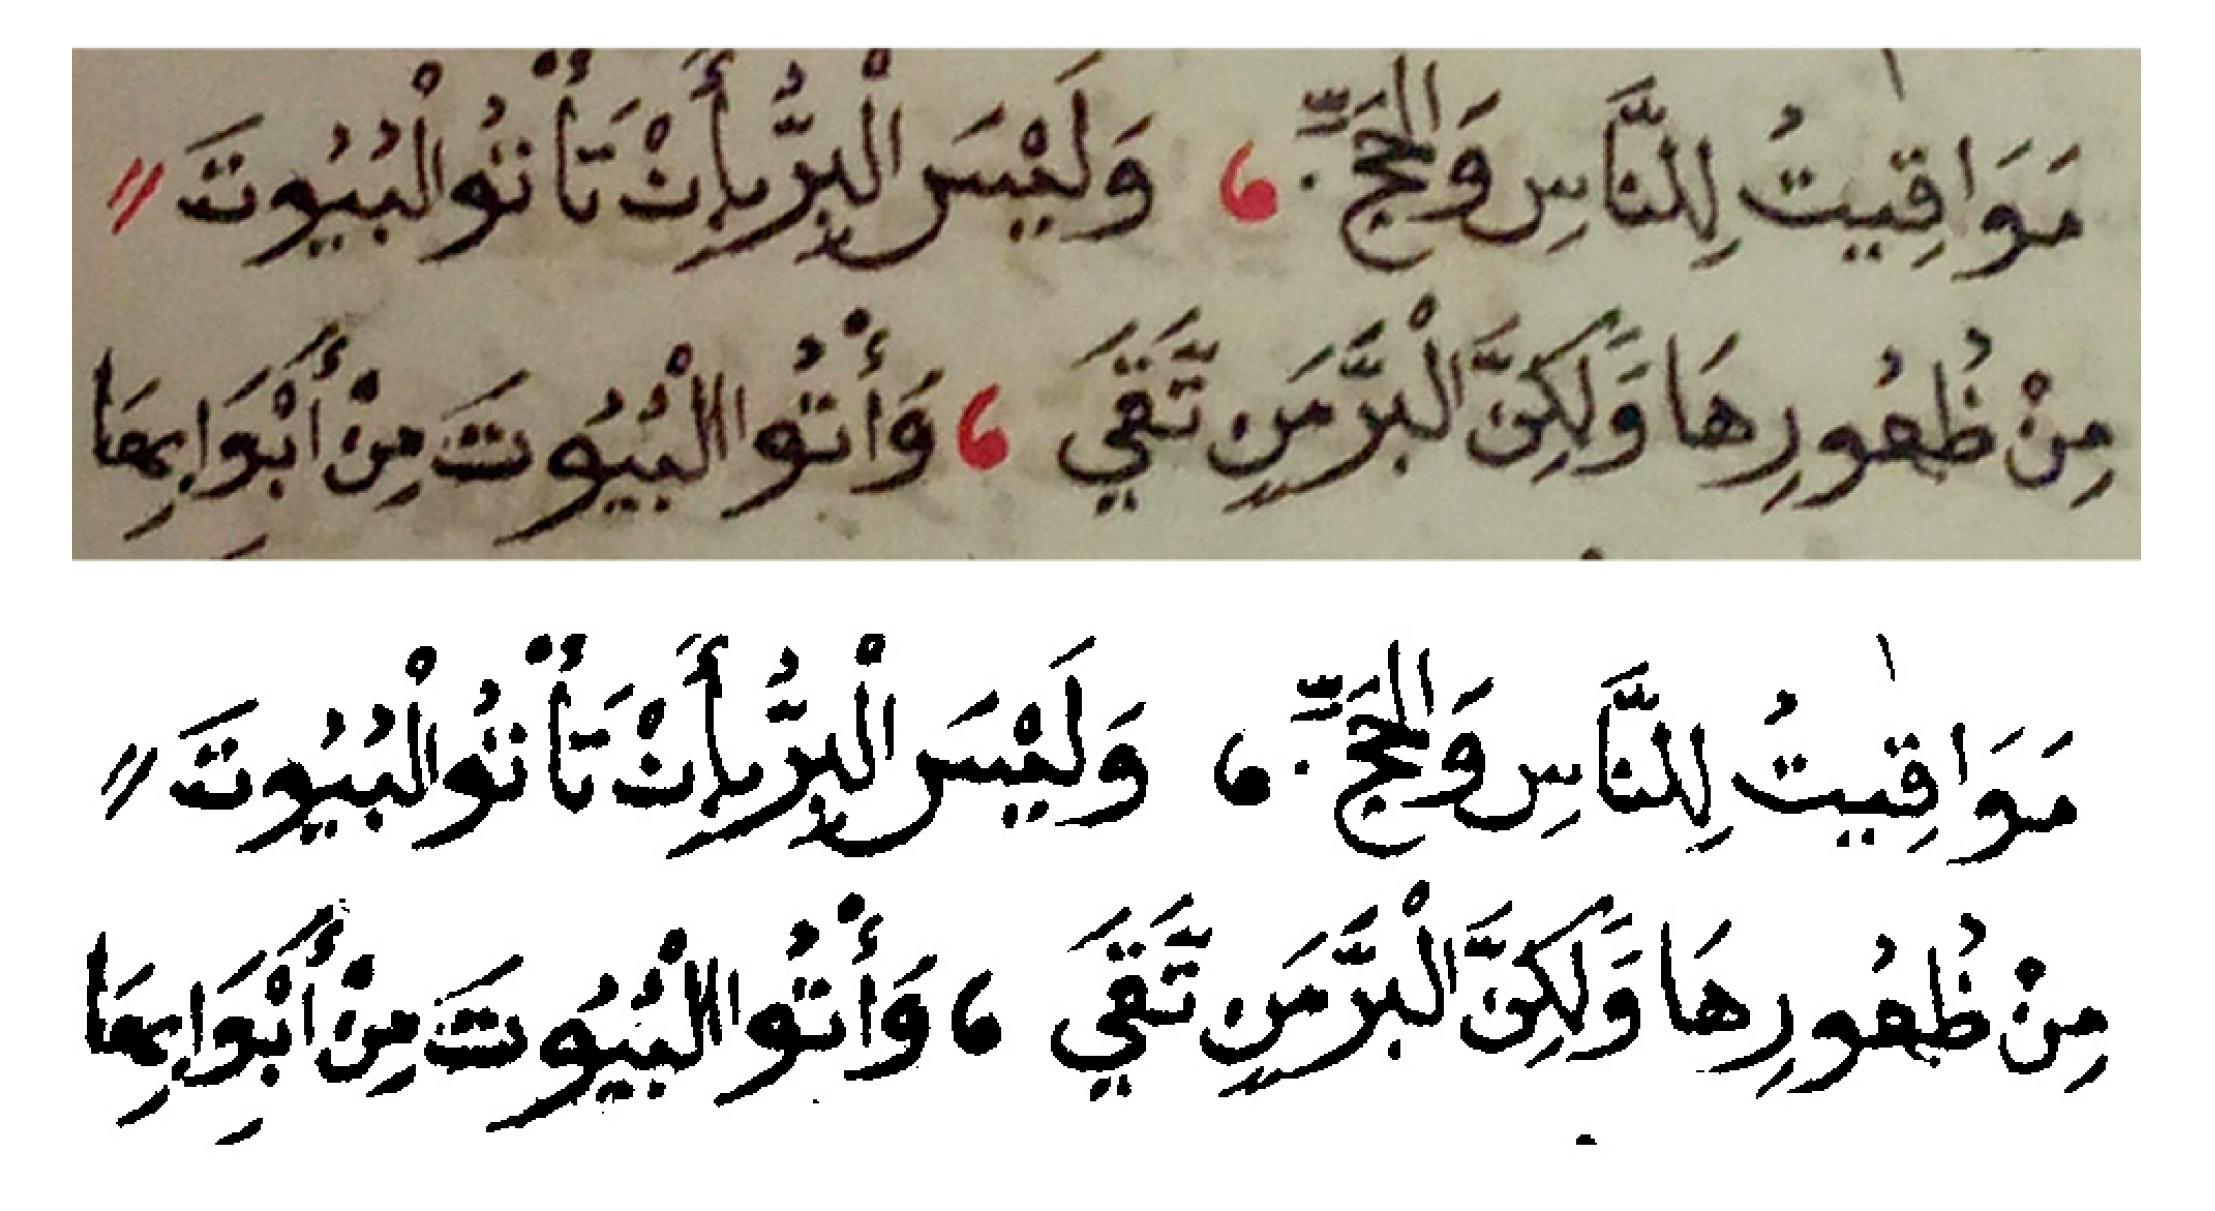 مَوَاقِيتُ لِلنَّاسِ وَالحَجِّ ، وَلَيْسَ الْبِرُّ بِأَنْ تَأْتُوالْبُيُوتَ //
مِنْ ظُهُورِهَا وَلَكِنَّ الْبِرَّ مَنِ تَّقَي ، وَأْتُوا الْبُيُوتَ مِنْ أَبْوَابِهَا
مَوَاقِيتُ لِلنَّاسِ وَالحَجِّ ، وَلَيْسَ الْبِرُّ بِأَنْ تَأْتُوالْبُيُوتَ //
مِنْ ظُهُورِهَا وَلَكِنَّ الْبِرَّ مَنِ تَّقَي ، وَأْتُوا الْبُيُوتَ مِنْ أَبْوَابِهَا